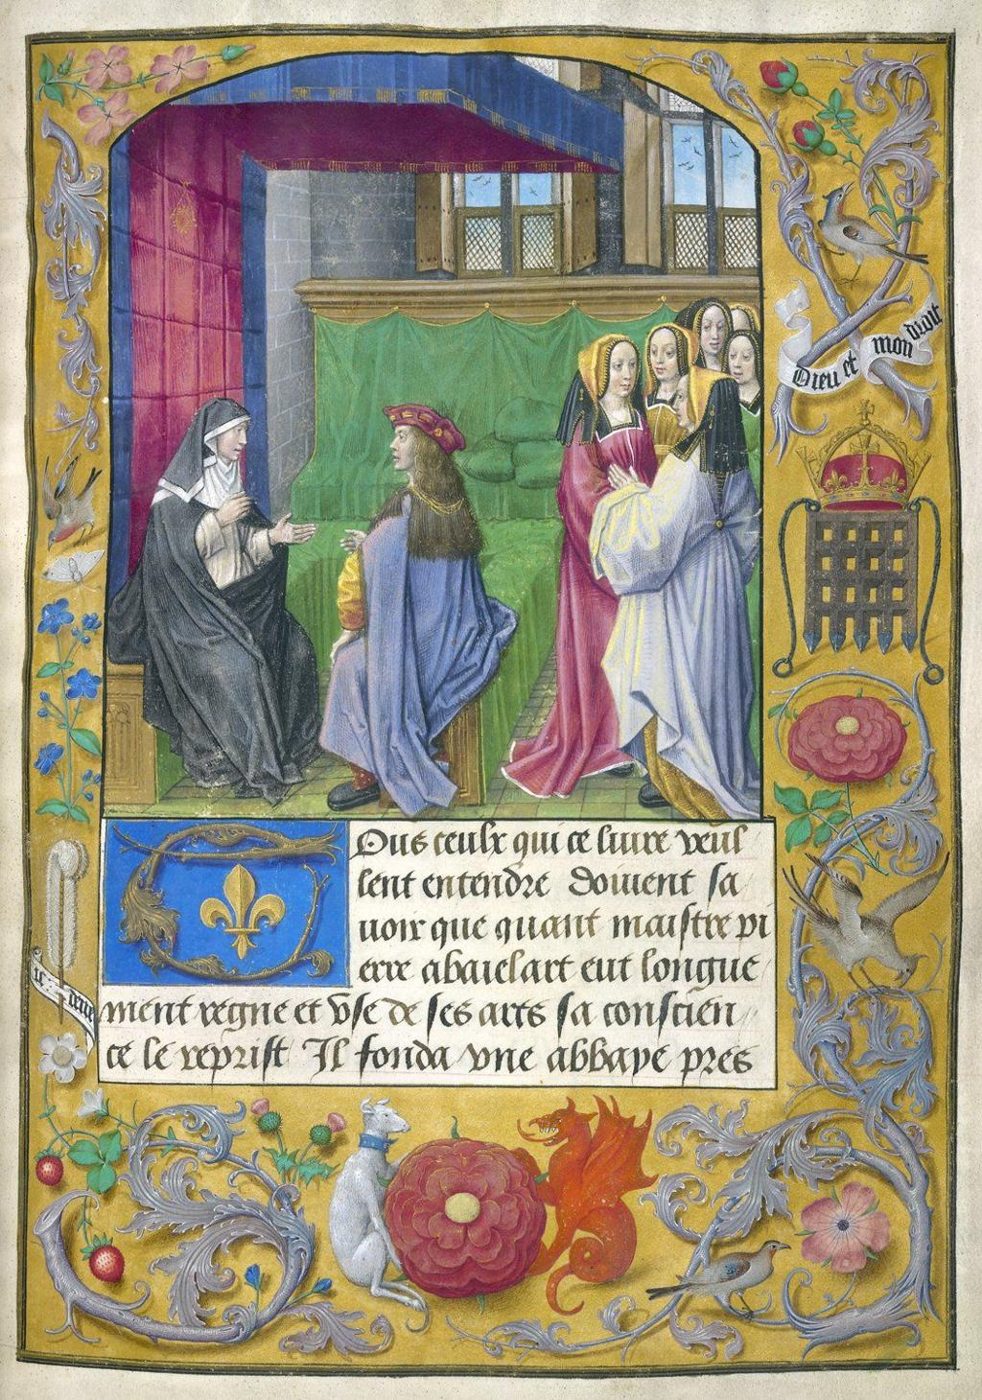 Dieu et mon droit
Ous ceulx qui ce liure veul
lent entendre doiuent sa
uoir que quant maistre pi
erre abaielart eut longue
ment regne et vse de ses arts sa conscien
ce le reprist Il fonda vne abbaye pres